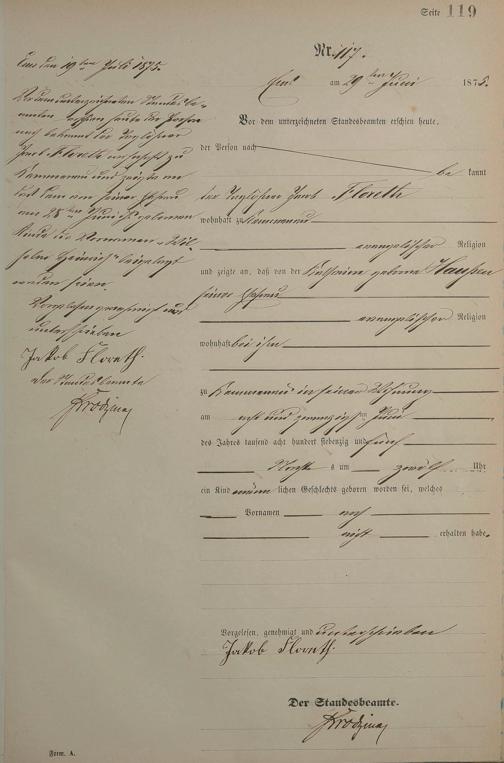 Seite 119
Nr. 117.
Ems am 29ten Juni 1875.
Vor dem unterzeichneten Standesbeamten erschien heute,
der Person nach
be kannt
der Taglöhner Jacob Floreth
wohnhaft zu Kemmenau
evangelischer Religion
und zeigte an, daß von der Katharina geborne
seiner Ehefrau
evangelischer Religion
wohnhaft bei ihm
zu Kemmenau in seiner Wohnung
am acht und zwanzigsten Juni
des Jahres tausend acht hundert siebenzig und fünf
Nachts um zwölf Uhr
ein Kind männ lichen Geschlechts geboren worden sei, welches
Vornamen noch
nicht erhalten habe.
Vorgelesen, genehmigt und unterschrieben
Jakob Floreth.
Der Standesbeamte.
Ems den 19ten Juli 1875.
Vor dem unterzeichneten Standesbe-
amten erschien heute der Person
nach bekannt der Taglöhner
Jacob Floreth wohnhaft zu
Kemmenau und zeigte an
daß dem von seiner Ehefrau
am 28ten Juni geborenen
Kinde die Vornamen „Wil-
helm Heinrich" beigelegt
worden seien.
Vorgelesen genehmigt und
unterschrieben
Jakob Floreth.
Der Standesbeamte
Form. A.